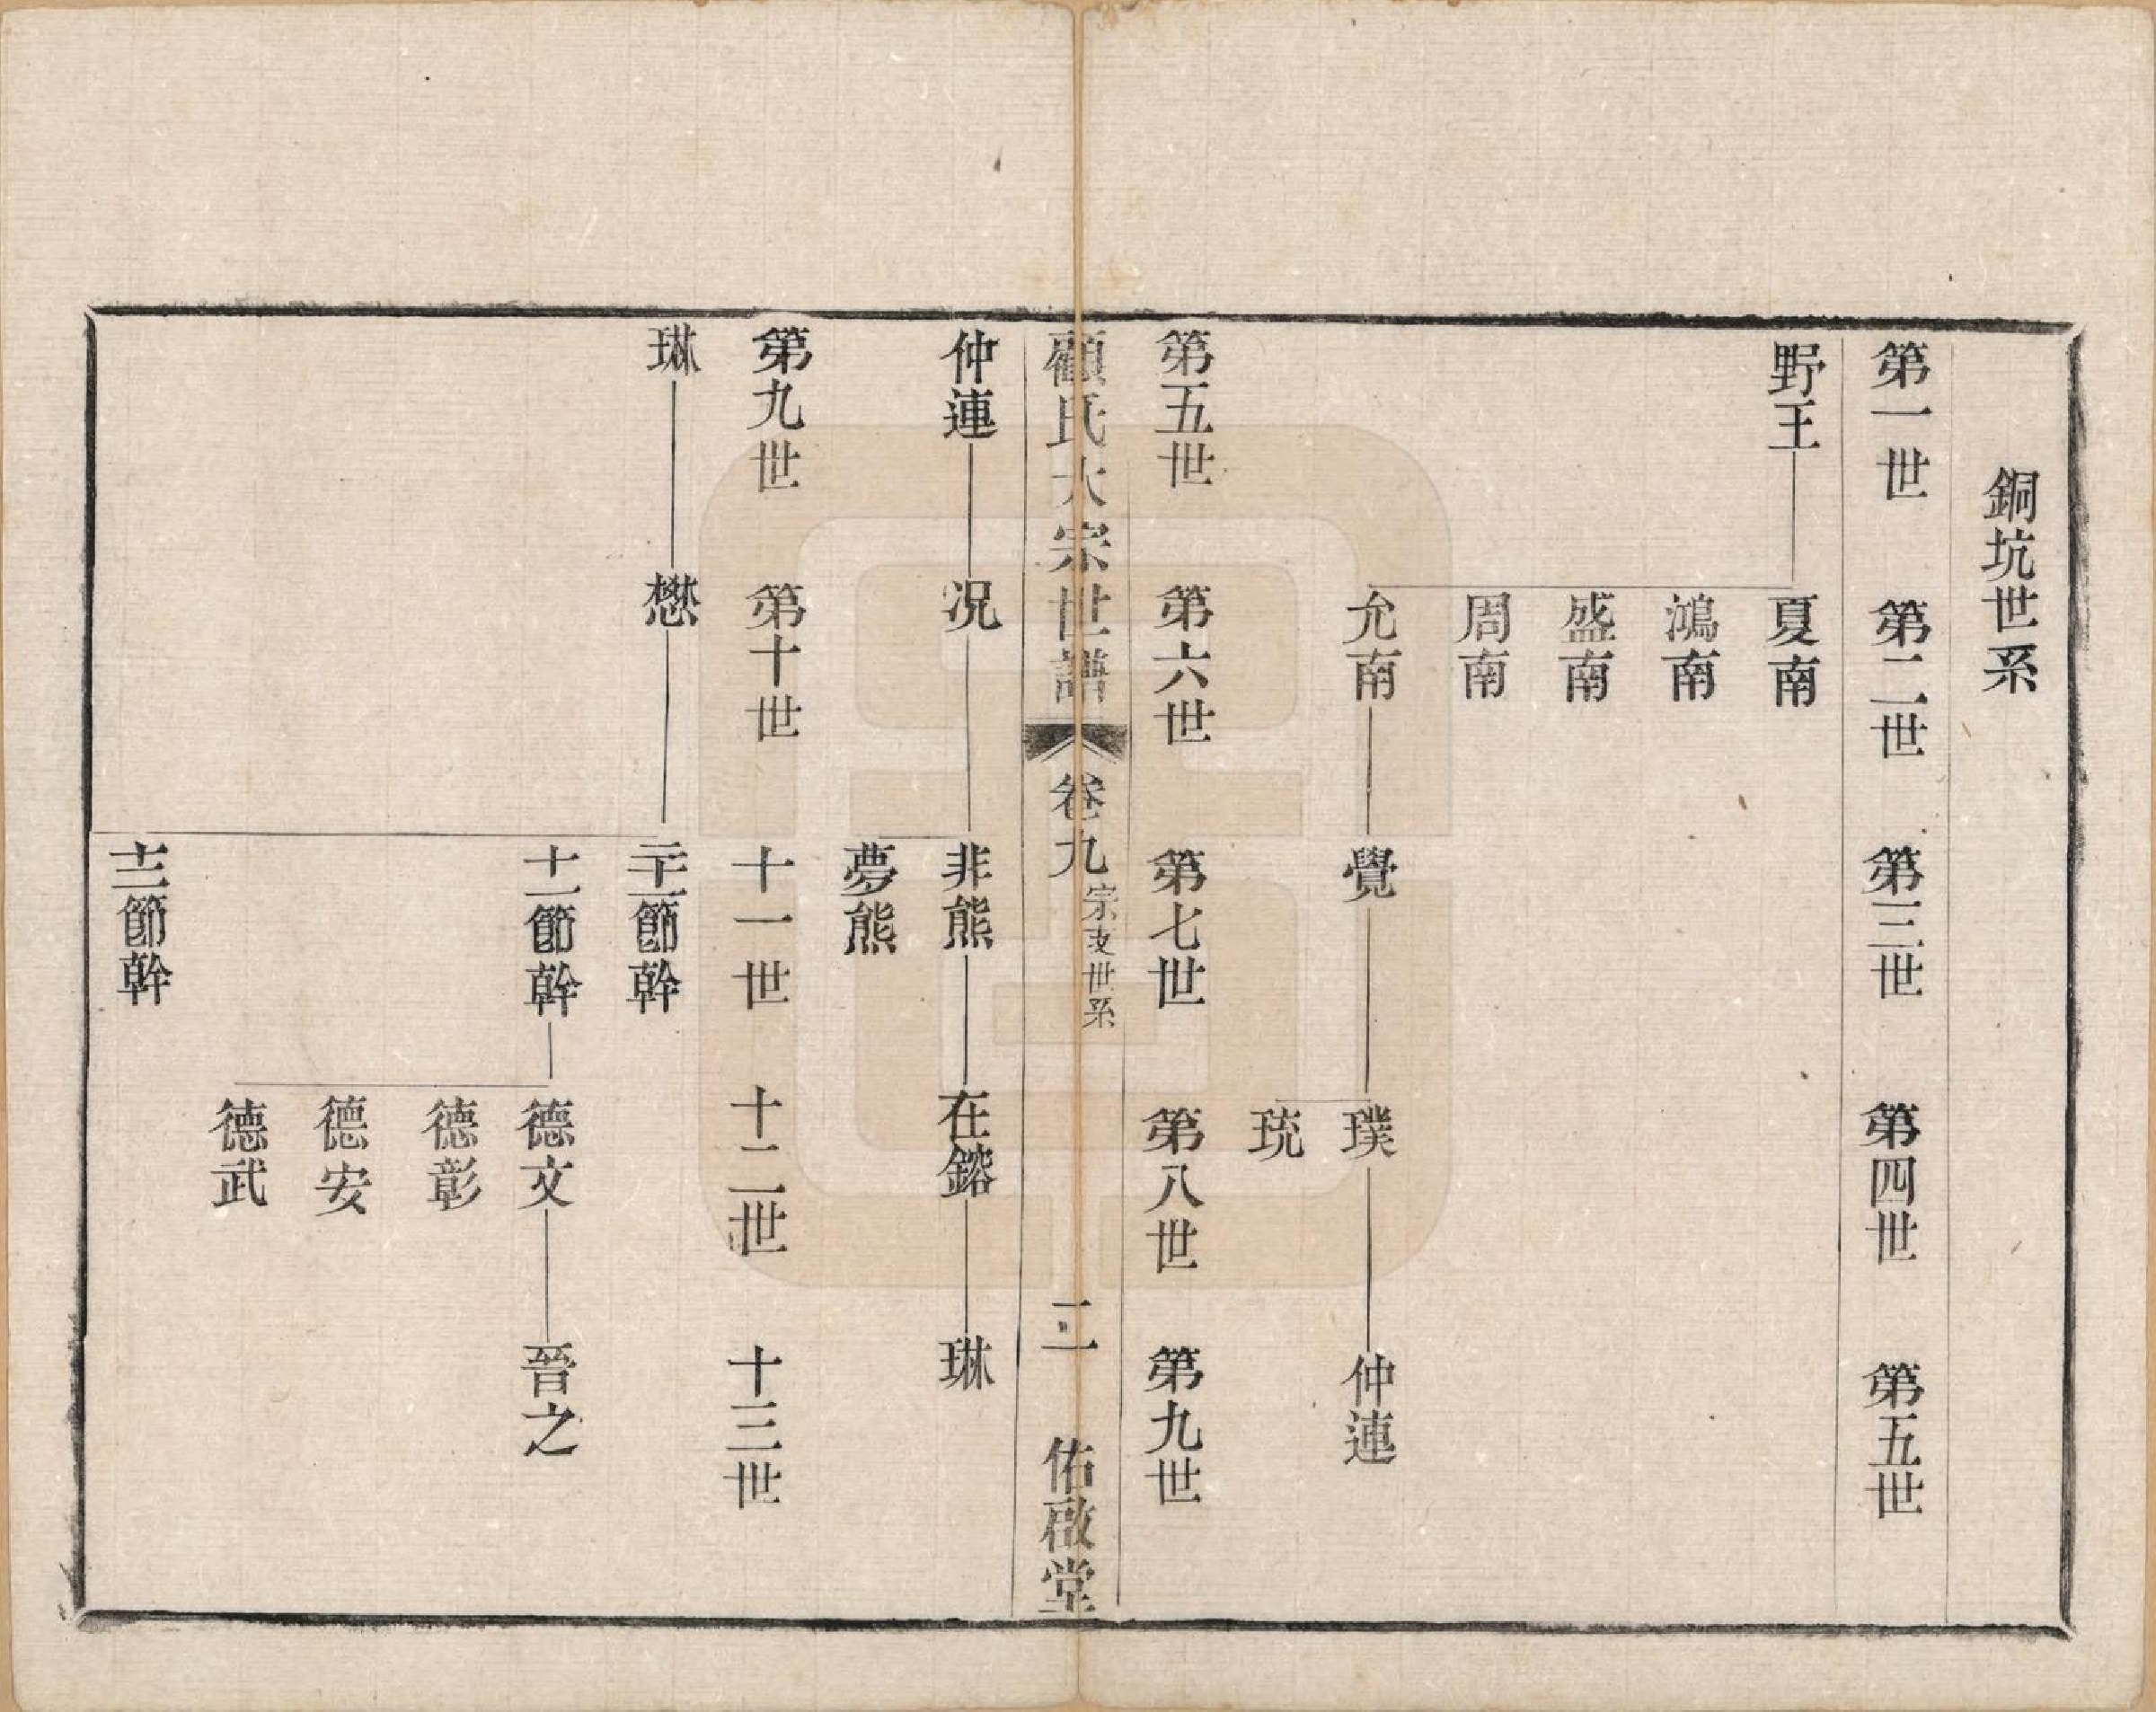 銅坑世系
第一世 第二世 第三世 第四世 第五世
野王 夏南
鴻南
盛南
周南
允南 覺 璞 仲連
琉
第五世 第六世 第七世 第八世 第九世
顧氏大宗世譜 卷九 宗支世系 二 佑啟堂
仲連 况 非熊 在鎔 琳
夢熊
第九世 第十世 十一世 十二世 十三世
琳 懋 二十一節幹
十一節幹 德文 晉之
德彰
德安
德武
十二節幹